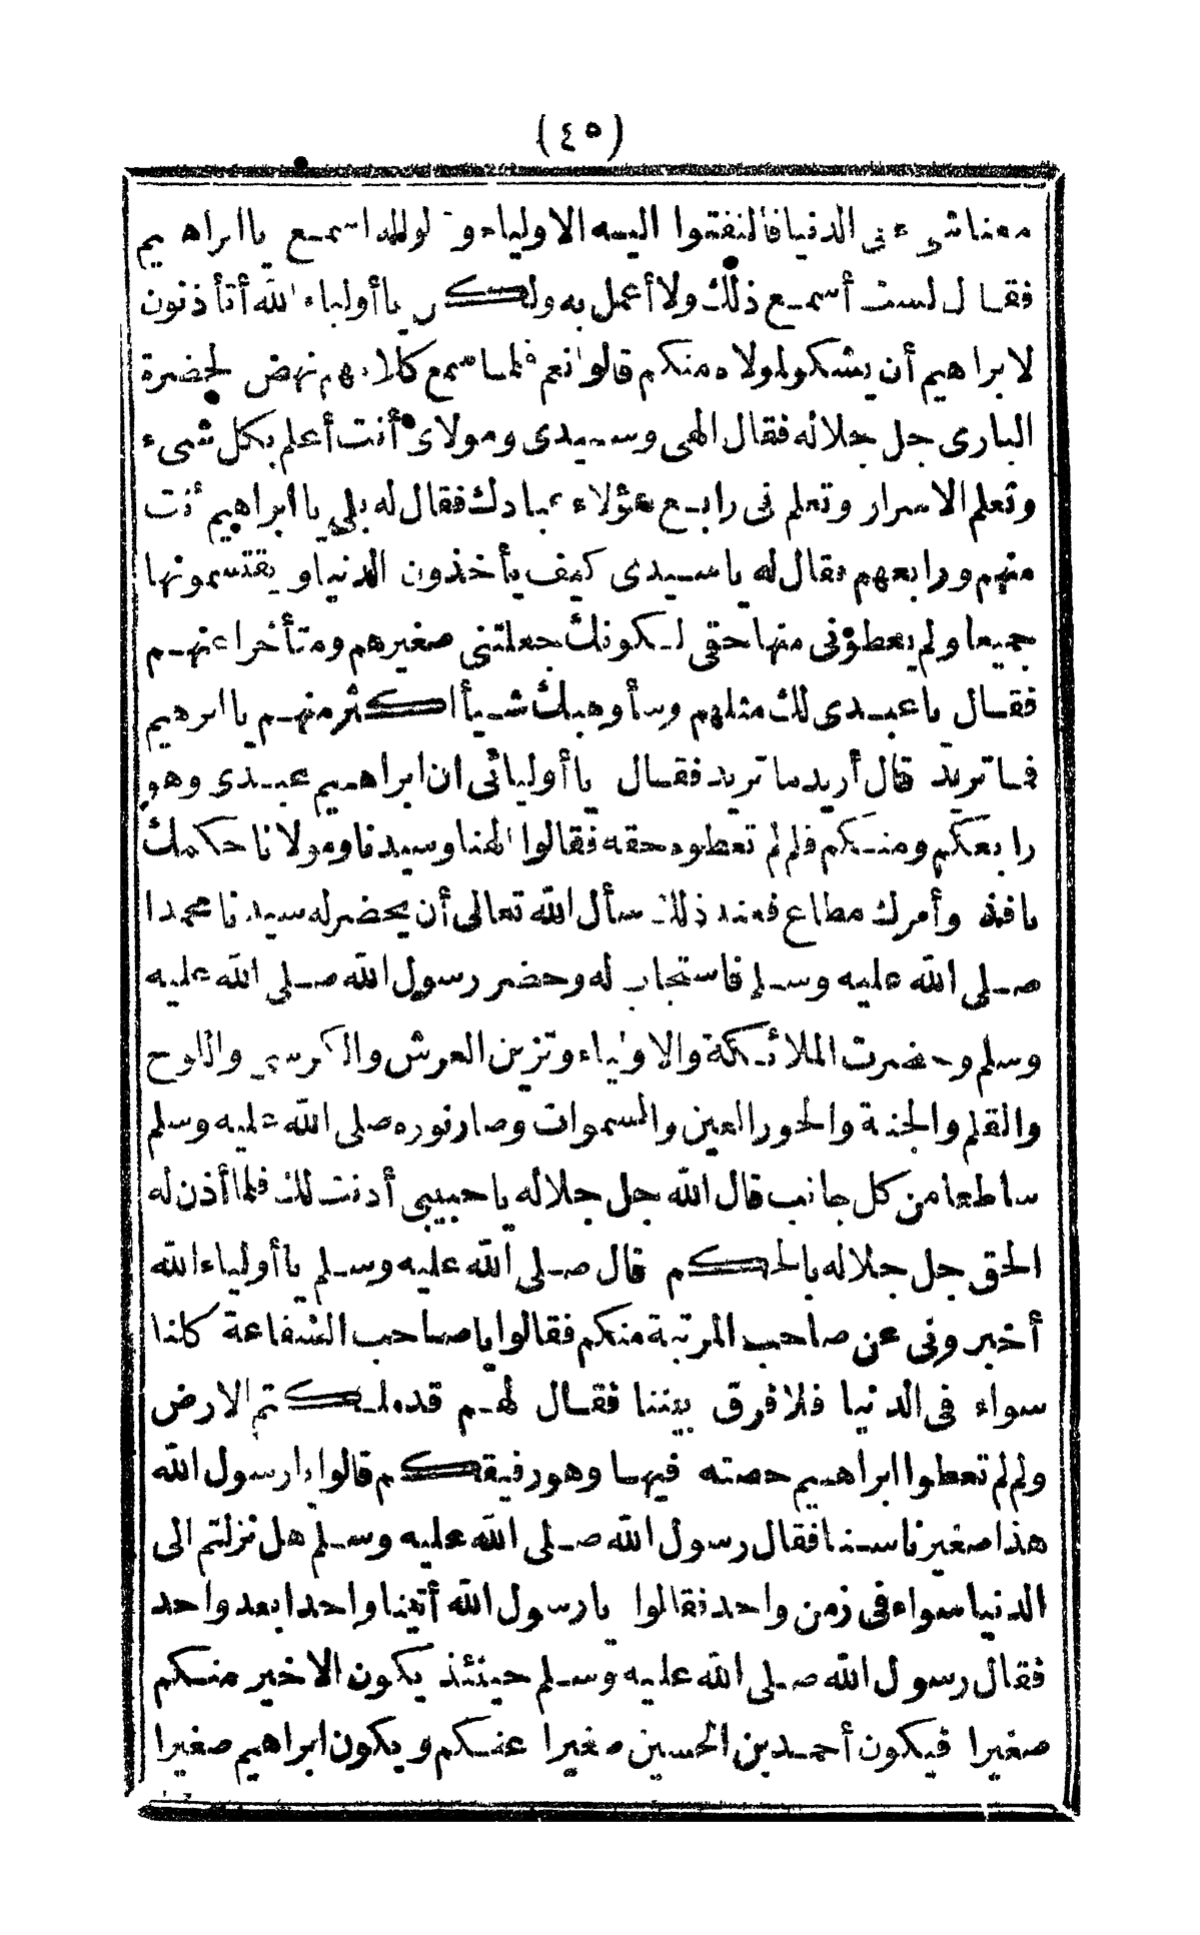 (٤٥)
معناشىء فى الدنيا فالتفتوا اليه الاولياء و لوالله اسمع يا ابراهيم
فقال لست أسمع ذلك ولا أعمل به ولكن يا أولياء الله أتأذنون
لابراهيم أن يشكولمولاه منكم قالوا نعم فلما سمع كلامهم نهض لحضرة
البارى جل جلاله فقال الهى وسيدى ومولاى أنت أعلم بكل شىء
وتعلم الاسرار وتعلم فى رابع هؤلاء عبادك فقال له بلى يا ابراهيم أنت
منهم ورابعهم فقال له يا سيدى كيف يأخذون الدنيا ويقتسمونها
جميعا ولم يعطوفى منها حقى لكونك جعلتنى صغيرهم ومتأخرا عنهم
فقال يا عبدى لك مثلهم وسأوهبك شيأ أكثر منهم يا ابرهيم
فما تريد قال أريد ما تريد فقال يا أوليائى ان ابراهيم عبدى وهو
رابعكم ومنكم فلم لم تعطوه حقه فقالوا الهنا وسيدنا ومولانا حكمك
نافذ وأمرك مطاع فعند ذلك سأل الله تعالى أن يحضر له سيدنا محمدا
صلى الله عليه وسلم فاستجاب له وحضر رسول الله صلى الله عليه
وسلم وحضرت الملائكة والاولياء وتزين العرش والكرسى واللوح
والقلم والجنة والحور العين والسموات وصار نوره صلى الله عليه وسلم
ساطعا من كل جانب قال الله جل جلاله يا حبيبى أدنت لك فلما أذن له
الحق جل جلاله بالحكم قال صلى الله عليه وسلم يا أولياء الله
أخبرونى عن صاحب المرتبة منكم فقالوا يا صاحب الشفاعة كلنا
سواء فى الدنيا فلا فرق بيننا فقال لهم قد ملكتم الارض
ولم لم تعطوا ابراهيم حصته فيها وهو رفيقكم قالوا يا رسول الله
هذا صغيرنا سنا فقال رسول الله صلى الله عليه وسلم هل نزلتم الى
الدنيا سواء فى زمن واحد فقالوا يا رسول الله أتينا واحدا بعد واحد
فقال رسول الله صلى الله عليه وسلم حينئذ يكون الاخير منكم
صغيرا فيكون أحمد بن الحسين صغيرا عنكم ويكون ابراهيم صغيرا